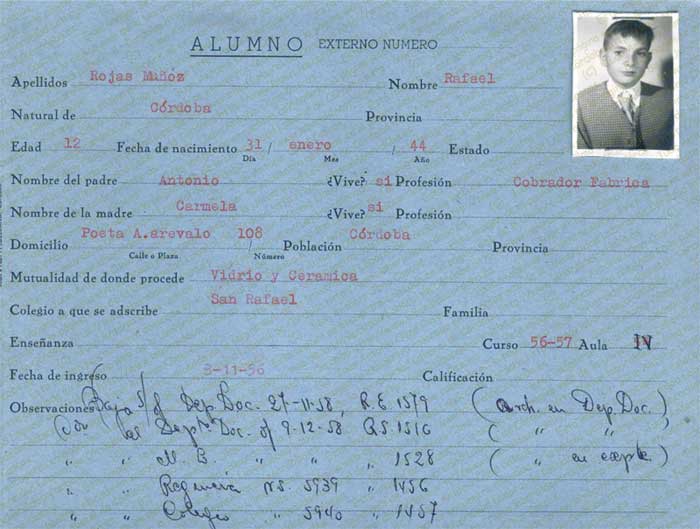 ALUMNO EXTERNO NUMERO
Apellidos Rojas Muñóz Nombre Rafael
Natural de Córdoba Provincia
Edad 12 Fecha de nacimiento 31 / enero / 44 Estado
Día Mes Año
Nombre del padre Antonio ¿Vive? si Profesión Cobrador Fabrica
Nombre de la madre Carmela ¿Vive? si Profesión
Domicilio Poeta A.arevalo 108 / Población Córdoba Provincia
Calle o Plaza Número
Mutualidad de donde procede Vidrio y Ceramica
San Rafael
Colegio a que se adscribe Familia
Enseñanza Curso 56-57 Aula IV
Fecha de ingreso 3-11-56 Calificación
Observaciones Baja s/of Dep. Doc. 27-11-58, R.E. 1579 (arch. en Dep. Doc.)
al Deptº Doc. of 9-12-58 R.S. 1516 ( " " )
" " M. B. " " " 1528 ( " en expte.)
" " R.S. 5939 " 1456
" " Colegio " 5940 " 1457